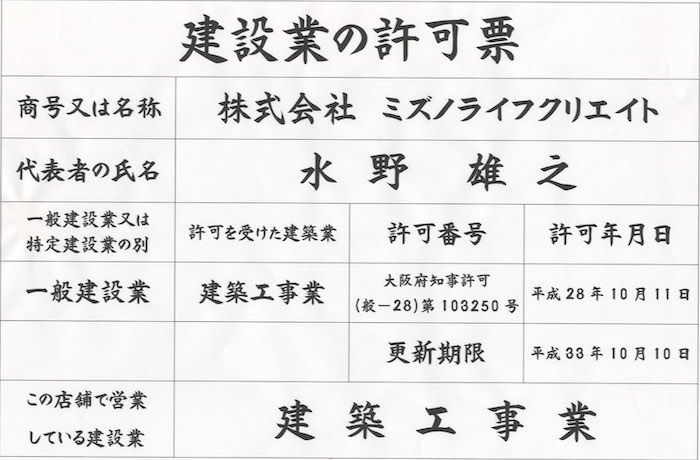 建設業の許可票
商号又は名称
株式会社 ミズノライフクリエイト
代表者の氏名
水野 雄之
一般建設業又は
特定建設業の別
許可を受けた建築業
許可番号
許可年月日
一般建設業
建築工事業
大阪府知事許可
(般－28)第103250号
平成28年10月11日
更新期限
平成33年10月10日
この店舗で営業
している建設業
建築工事業